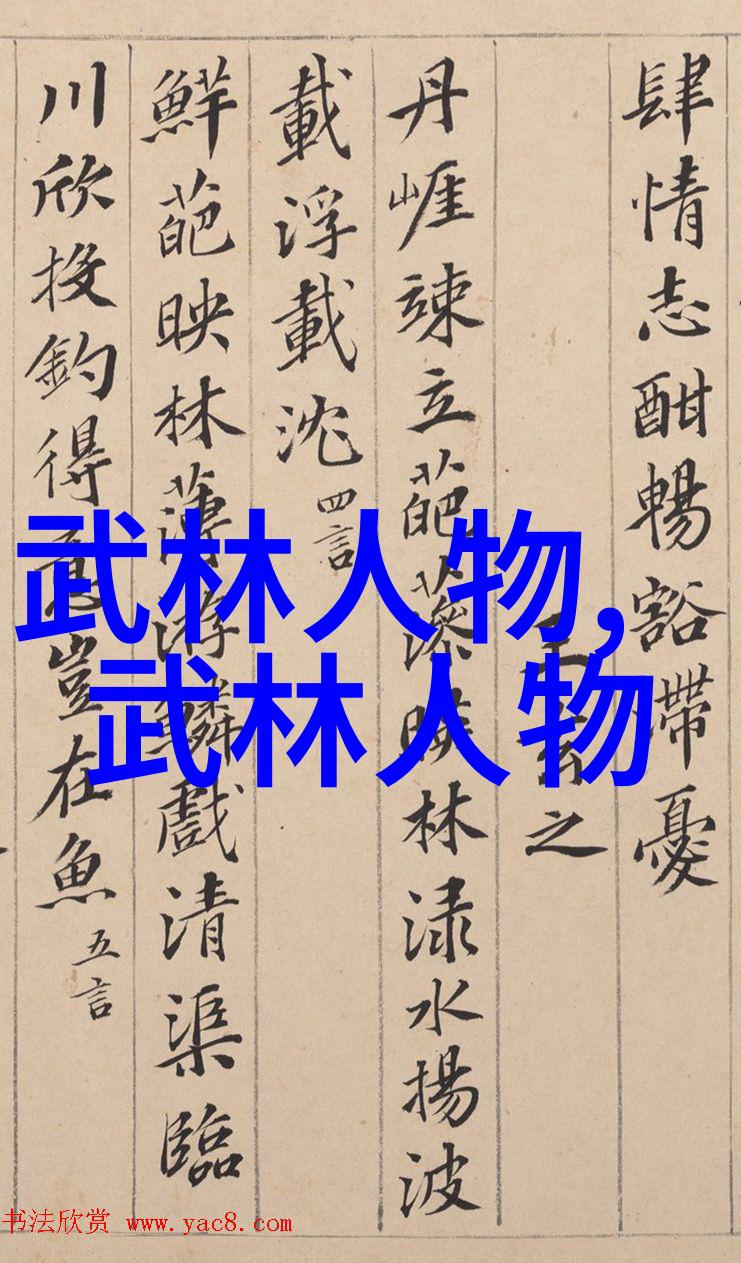 肆情志酣暢豁滯憂
王之
丹崕竦立葩藻映林淥水揚波
載浮載沈 四言
鮮葩映林薄游鱗戲清渠臨
川欣投釣得意豈在魚 五言
武林人物,
武林人物
书法欣赏 www.yac8.com